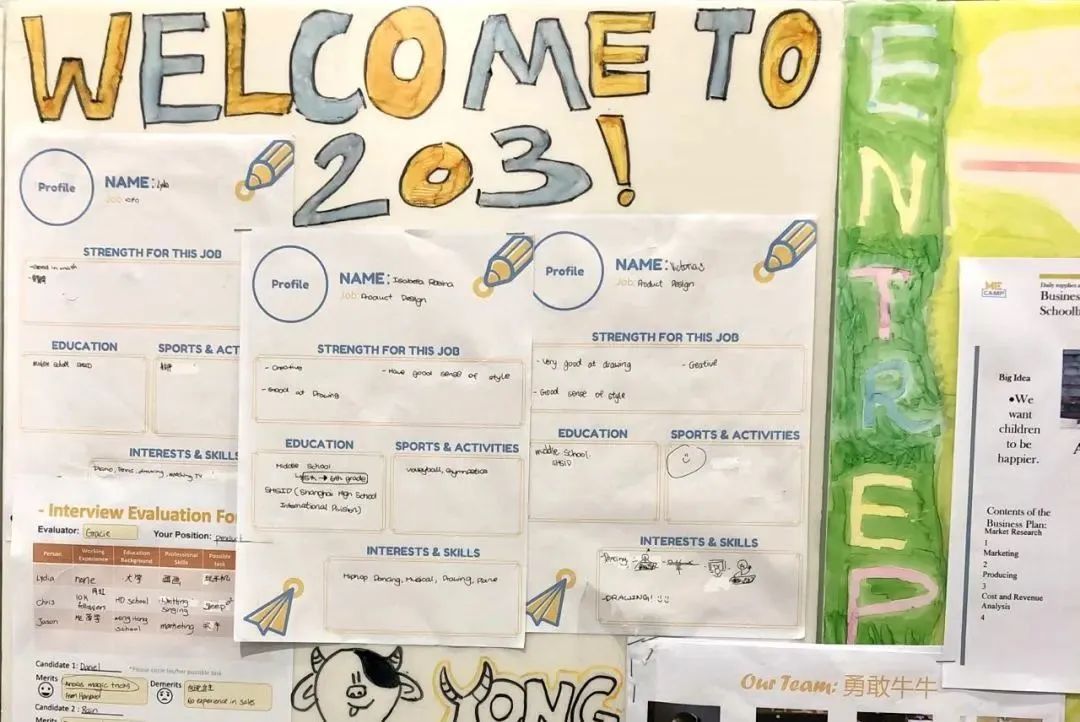 WELCOME TO
203!
Profile
NAME: Lydia
Job: CFO
STRENGTH FOR THIS JOB
-Good in math
EDUCATION
SPORTS & ACT
Middle school SHSID
INTERESTS & SKILLS
Piano, Tennis, drawing, watching TV
Profile
NAME: Isabella
Job: Product Design
STRENGTH FOR THIS JOB
- Creative
- Have good sense of style
- Good at Drawing
EDUCATION
Middle School
6th grade
SHSID (Shanghai High School
International Division)
SPORTS & ACTIVITIES
Volleyball, Gymnastics
INTERESTS & SKILLS
Hiphop Dancing, Musical, Drawing, Piano
Profile
NAME:
Job: Product Design
STRENGTH FOR THIS JOB
- Very good at drawing
- Creative
- Good sense of style
EDUCATION
Middle School
SHSID
SPORTS & ACTIVITIES
INTERESTS & SKILLS
-DRAWING!
- Interview Evaluation Fo
Evaluator: Gracie
Your Position: product
Person
Working Experience
Education Background
Professional Skills
Possible task
Lydia
none
大学
画画
Chris
10K followers
HD school
Writting singing
Jason
Hong Kong school
marketing
Candidate 1: Daniel
*Please circle his/her possible task
Merits
knows magic tricks
from Harvard
Demerits
no experience in sales
Candidate 2:
Merits
ENTREP
YONG
Our Team: 勇敢牛牛
ME
CAMP
Daily supplies
Business
Schoolb
Big Idea
•We
want
children
to be
happier.
Contents of the
Business Plan:
Market Research
1
Marketing
2
Producing
3
Cost and Revenue
Analysis
4